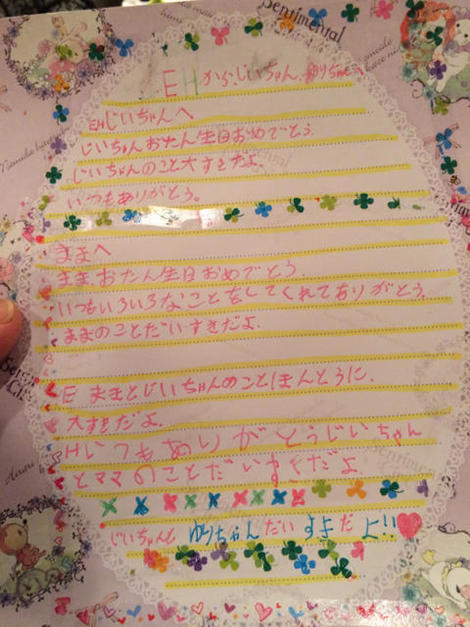 Sentimental
EHからじいちゃん、ゆりちゃんへ
EHじいちゃんへ
じいちゃんおたん生日おめでとう。
じいちゃんのこと大すきだよ。
いつもありがとう。
ままへ
まま、おたん生日おめでとう。
いつもいろいろなことをしてくれてありがとう。
ままのことだいすきだよ。
E ままとじいちゃんのことほんとうに、
大すきだよ。
Hいつもありがとうじいちゃん
とママのことだいすきだよ
じいちゃんも ゆりちゃんだいすきだよ!!